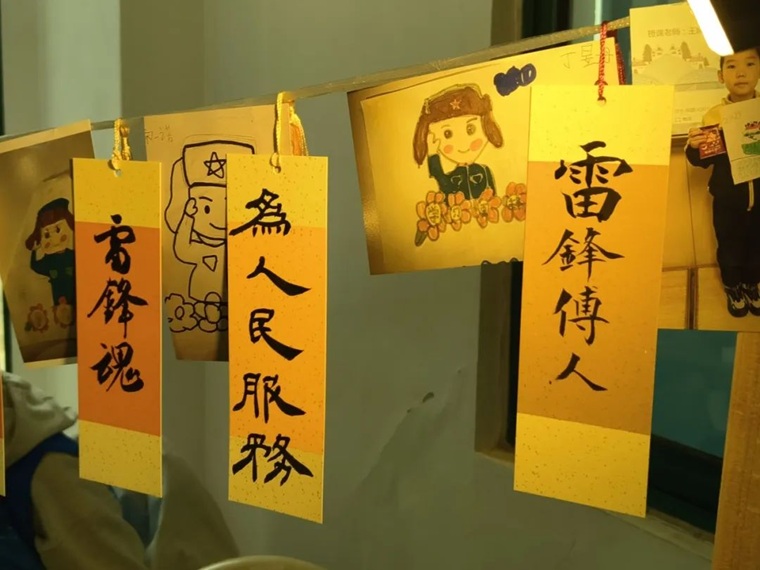 雷鋒魂
為人民服務
雷鋒傳人